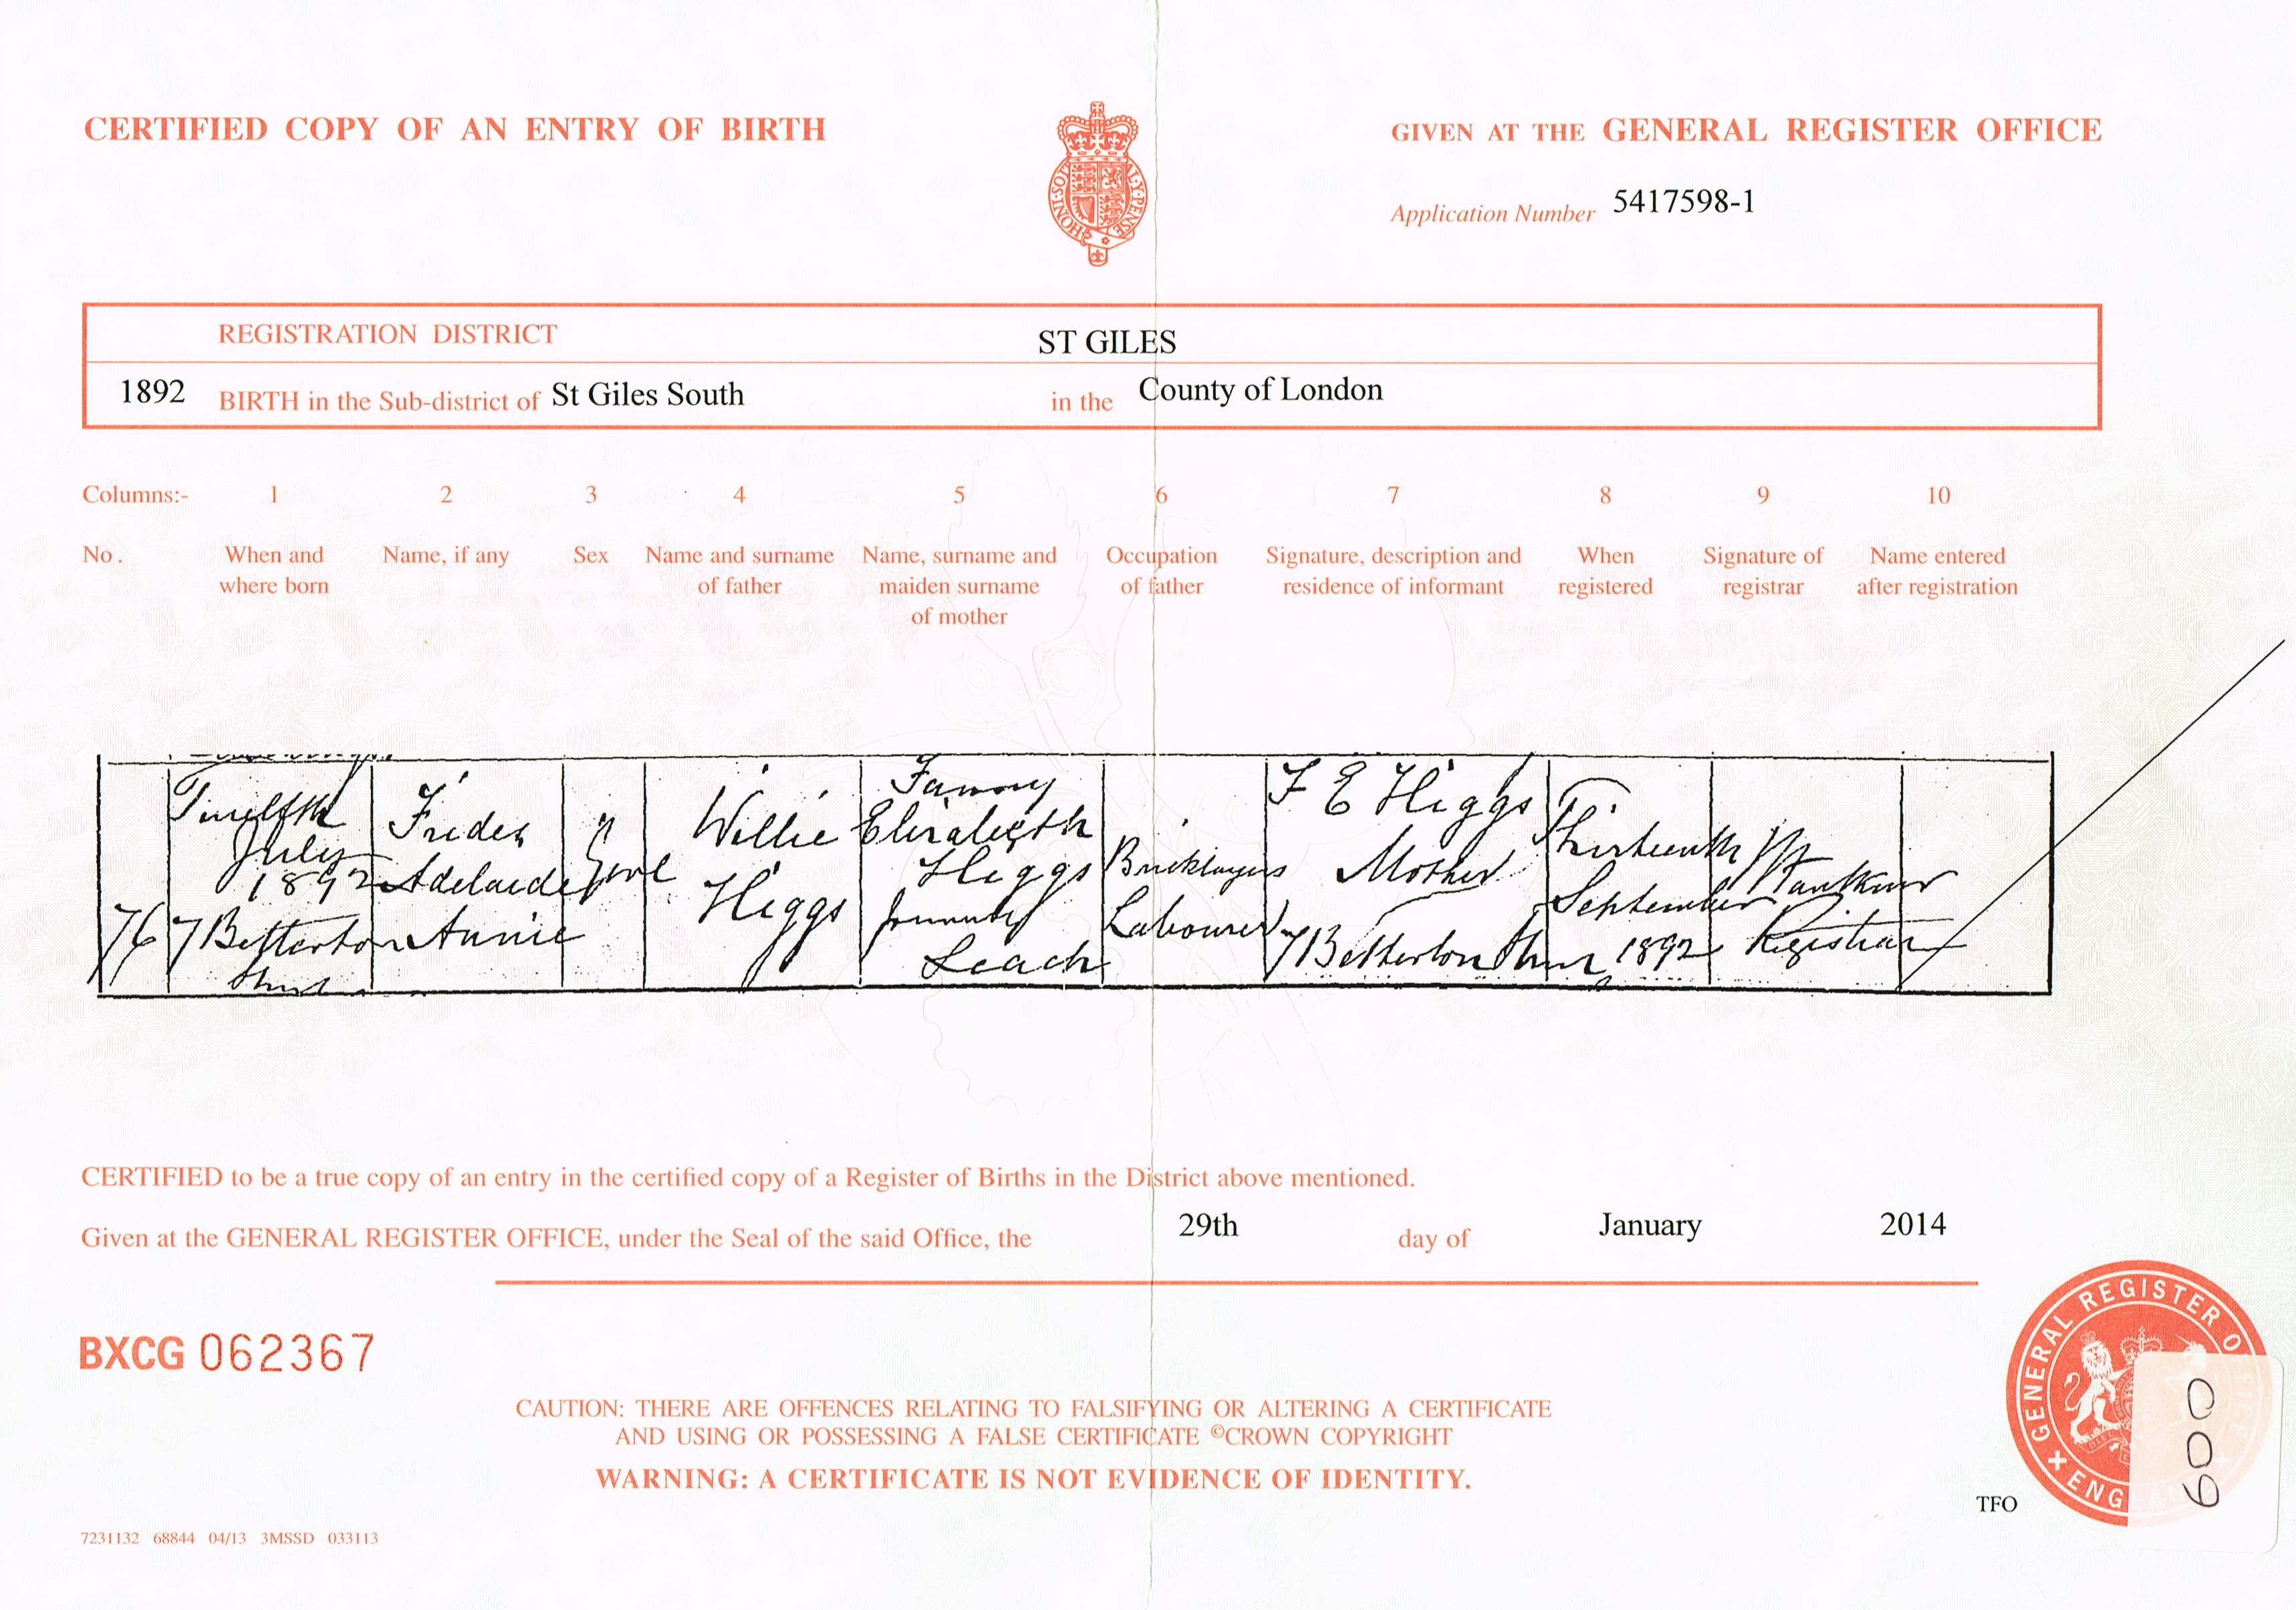 CERTIFIED COPY OF AN ENTRY OF BIRTH
GIVEN AT THE GENERAL REGISTER OFFICE
HONI·SOI AL·Y·PENSE
Application Number 5417598-1
REGISTRATION DISTRICT ST GILES
1892 BIRTH in the Sub-district of St Giles South in the County of London
Columns:- 1 2 3 4 5 6 7 8 9 10
No. When and where born
Name, if any
Sex
Name and surname of father
Name, surname and maiden surname of mother
Occupation of father
Signature, description and residence of informant
When registered
Signature of registrar
Name entered after registration
76
Twelfth
July
1892
7 Betterton
Street
Adelaide
Annie
Girl
Willie
Higgs
Fanny
Elizabeth
Higgs
formerly
Leach
Bricklayers
Labourer
F E Higgs
Mother
7 Betterton Street
Thirteenth
September
1892
Registrar
CERTIFIED to be a true copy of an entry in the certified copy of a Register of Births in the District above mentioned.
Given at the GENERAL REGISTER OFFICE, under the Seal of the said Office, the 29th day of January 2014
BXCG 062367
CAUTION: THERE ARE OFFENCES RELATING TO FALSIFYING OR ALTERING A CERTIFICATE
AND USING OR POSSESSING A FALSE CERTIFICATE ©CROWN COPYRIGHT
WARNING: A CERTIFICATE IS NOT EVIDENCE OF IDENTITY.
GENERAL REGISTER OFFICE
ENG
TFO
009
7231132 68844 04/13 3MSSD 033113